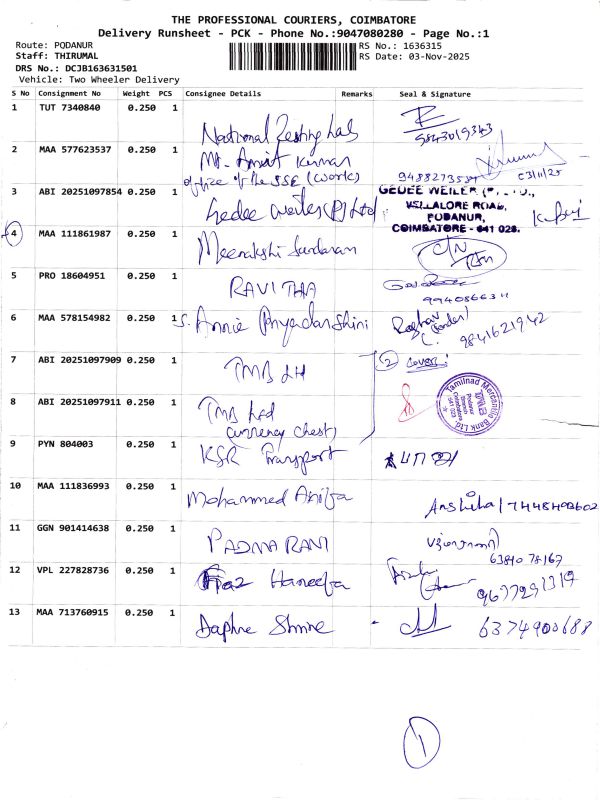 THE PROFESSIONAL COURIERS, COIMBATORE
Delivery Runsheet - PCK - Phone No.:9047080280 - Page No.:1
Route: PODANUR
Staff: THIRUMAL
DRS No.: DCJB163631501
Vehicle: Two Wheeler Delivery
RS No.: 1636315
RS Date: 03-Nov-2025
S No Consignment No Weight PCS Consignee Details Remarks Seal & Signature
1 TUT 7340840 0.250 1 National Testing Labs 9843019343
2 MAA 577623537 0.250 1 Mr. Amrit Kumar 03/11/25
office of the SSE (works)
3 ABI 20251097854 0.250 1 Gedee Weiler (P) Ltd GEDEE WEILER (P) LTD.,
VELLALORE ROAD,
PODANUR,
COIMBATORE - 641 023.
4 MAA 111861987 0.250 1 Meenakshi Sundaram
5 PRO 18604951 0.250 1 RAVITHA
6 MAA 578154982 0.250 1 S. Annie Priyadarshini Raghav 9841621942
7 ABI 20251097909 0.250 1 TMB Ltd 2 cover
8 ABI 20251097911 0.250 1 TMB Ltd
currency chest)
Tamilnad Mercantile Bank Ltd.
Podanur
Branch
Coimbatore
641 023
9 PYN 804003 0.250 1 KSR Transport
10 MAA 111836993 0.250 1 Mohammed Anifa 7448493602
11 GGN 901414638 0.250 1 PADMA RANI
6381078167
12 VPL 227828736 0.250 1 Haneefa 9677291319
13 MAA 713760915 0.250 1 Daphne Shrine 6374900688
1